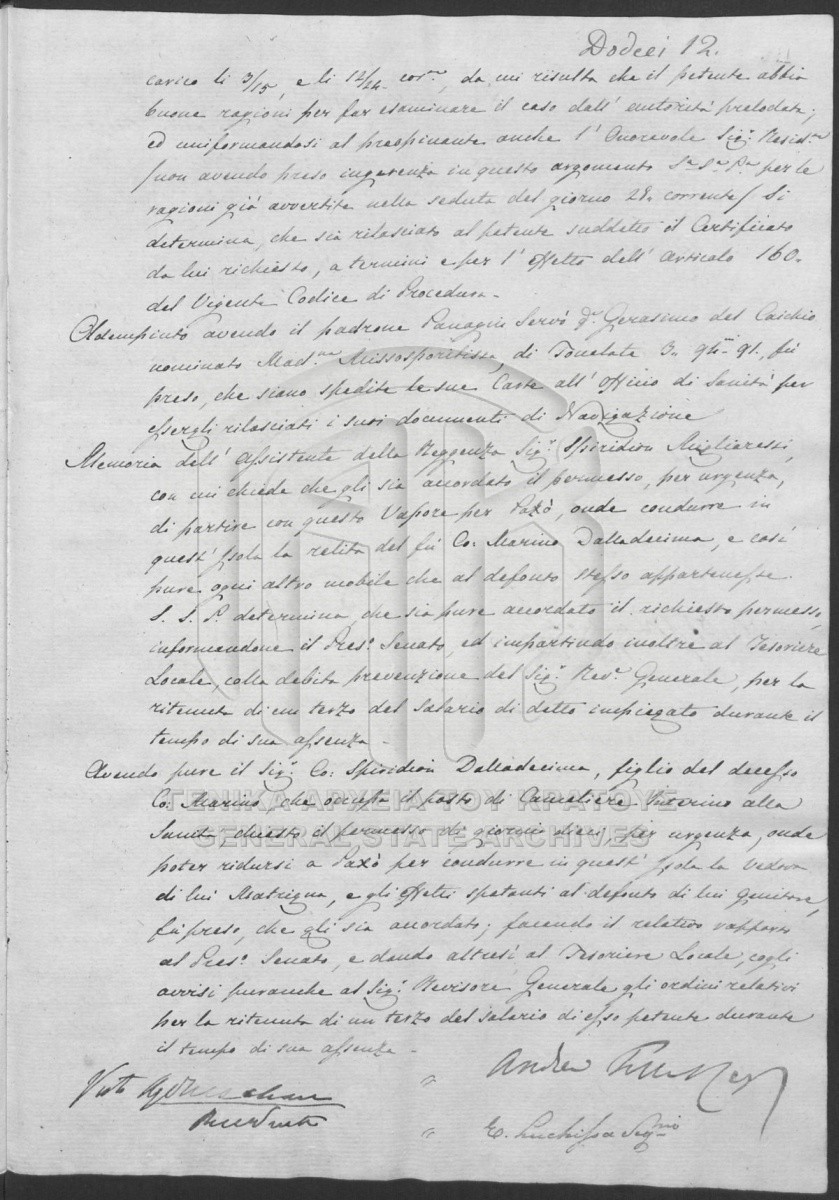 Dodeci 12.
carico li 3/15, e li 12/24 cor.te, da cui risulta che il petente abbia
buone ragioni per far esaminare il caso dall' autorità prelodata;
ed uniformandosi al preopinante anche l' Onorevole Sig.r Resid.te
(non avendo preso ingerenza in questo argomento S.a S.a P.a per le
ragioni già avvertite nella seduta del giorno 28. corrente) Si
determina, che sia rilasciato al petente suddetto il Certificato
da lui richiesto, a termini e per l' effetto dell' articolo 160.
del Vigente Codice di Procedura.
Adempiuto avendo il padrone Panagin Servò q.m Gerasimo del Caichio
nominato Mad.na Missosporitissa, di Tonelate 3. 91., fù
preso, che siano spedite le sue Carte all' Officio di Sanità per
essergli rilasciati i suoi documenti di Navigazione
Memoria dell' Assistente della Reggenza Sig.r Spiridion Migliaressi,
con cui chiede che gli sia accordato il permesso, per urgenza,
di partire con questo Vapore per Paxò, onde condurre in
quest' Isola la relita del fù Co: Marino Dalladecima, e così
pure ogni altro mobile che al defonto stesso appartenesse.
S. S. P. determina, che sia pure accordato il richiesto permesso,
informandone il Pres.o Senato, ed impartindo inoltre al Tesoriere
Locale, colla debita prevenzione del Sig.r Rev.r Generale, per la
ritenuta di un terzo del salario di detto impiegato durante il
tempo di sua assenza -
Avendo pure il Sig.r Co: Spiridion Dalladecima, figlio del decesso
Co. Marino, che occupa il posto di Canceliere Interino alla
Sanità chiesto il permesso di giorni dieci, per urgenza, onde
poter ridursi a Paxò per condurre in quest' Isola la Vedova
di lui Matrigna, e gli effetti spetanti al defonto di lui Genitore,
fù preso, che gli sia accordato; facendo il relativo rapporto
al Pres.o Senato, e dando altresì al Tesoriere Locale, cogli
avvisi puranche al Sig.r Revisore Generale gli ordini relativi
per la ritenuta di un terzo del salario di esso petente durante
il tempo di sua assenza -
Visto
Andrea
E. Luchissa Seg.rio
ΓΕΝΙΚΑ ΑΡΧΕΙΑ ΤΟΥ ΚΡΑΤΟΥΣ
GENERAL STATE ARCHIVES